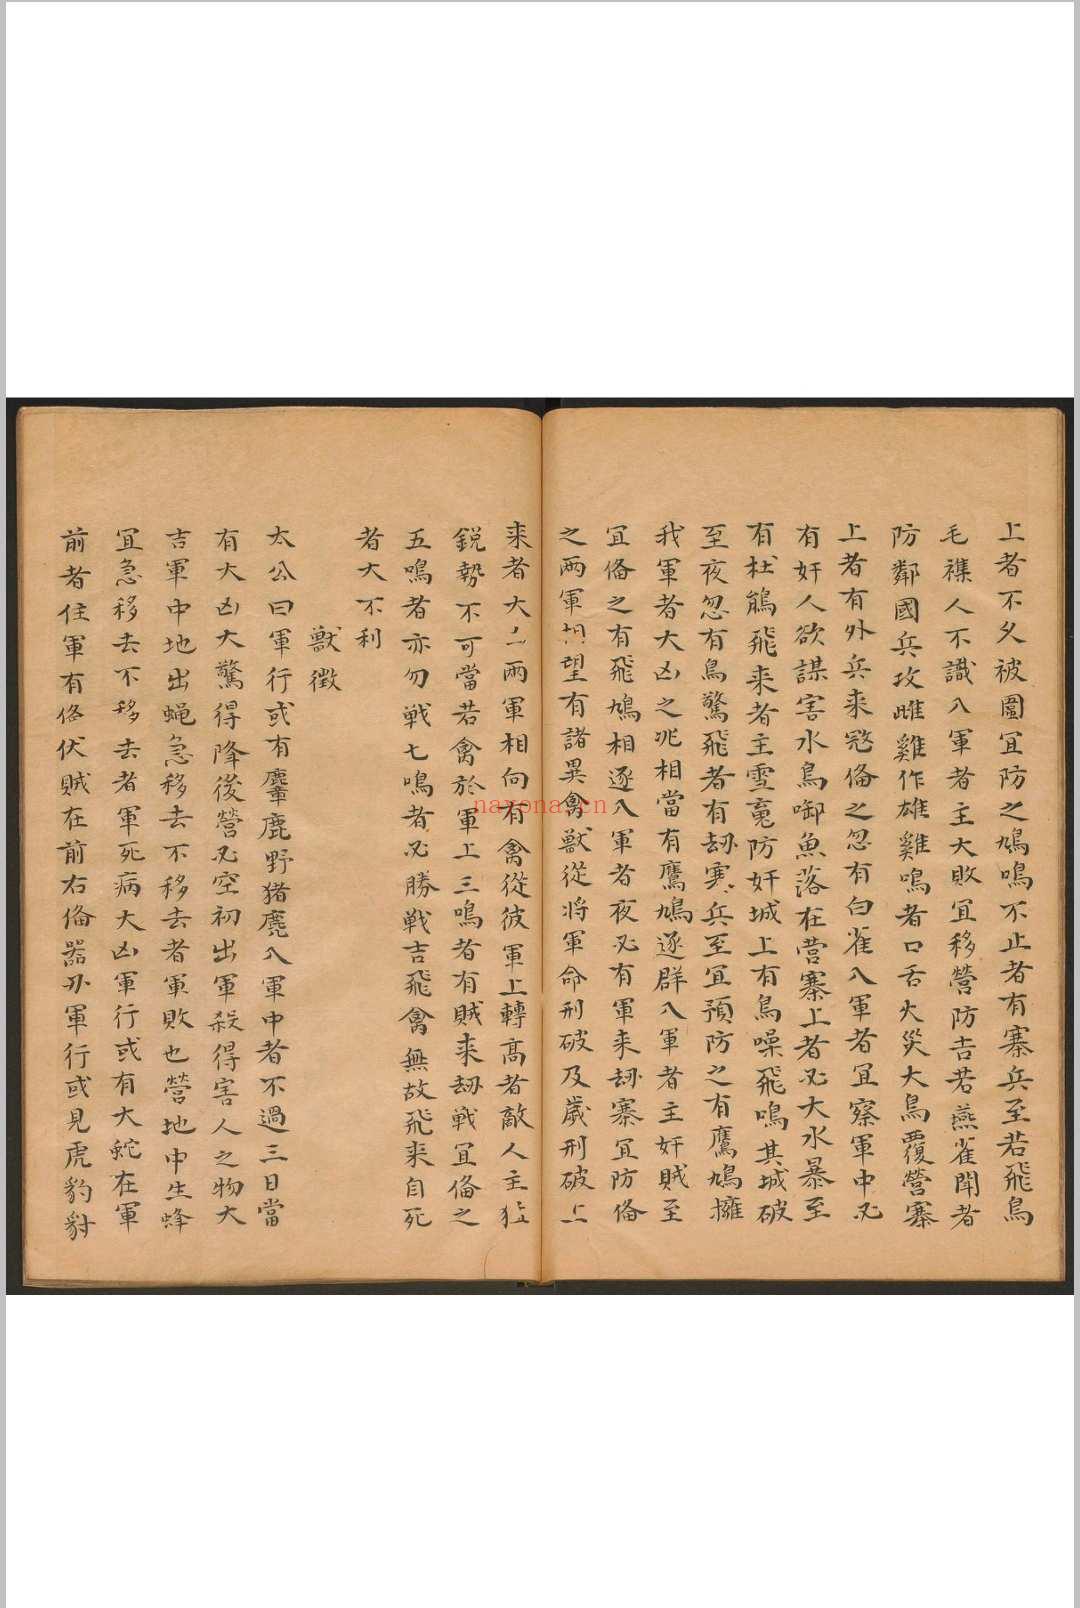 上者不久被圍冝防之鳩鳴不止者有寨兵至若飛鳥
毛襍人不識入軍者主大敗冝移營防吉若燕雀聞者
防鄰國兵攻雌雞作雄雞鳴者口舌火災大鳥覆營寨
上者有外兵来㓂俻之忽有白雀入軍者冝察軍中必
有奸人欲謀害水鳥啣魚落在營寨上者必大水暴至
有杜鵑飛来者主雪寃防奸城上有鳥噪飛鳴其城破
至夜忽有鳥驚飛者有刼寨兵至冝預防之有鷹鳩擁
我軍者大凶之兆相當有鷹鳩逐群入軍者主奸賊至
冝俻之有飛鳩相逐入軍者夜必有軍来刼寨冝防俻
之兩軍相望有諸異禽獸從将軍命刑破及歲刑破上
来者大 兩軍相向有禽從彼軍上轉髙者敵人主猛
銳勢不可當若禽於軍上三鳴者有賊来刼戰冝俻之
五鳴者亦勿戰七鳴者必勝戰吉飛禽無故飛来自死
者大不利
獸徴
太公曰軍行或有麞鹿野猪麂入軍中者不過三日當
有大凶大驚得降後營必空初出軍殺得害人之物大
吉軍中地出蝇急移去不移去者軍敗也營地中生蜂
冝急移去不移去者軍死病大凶軍行或有大蛇在軍
前者住軍有俻伏賊在前右俻噐刄軍行或見虎豹豺
nayona.cn